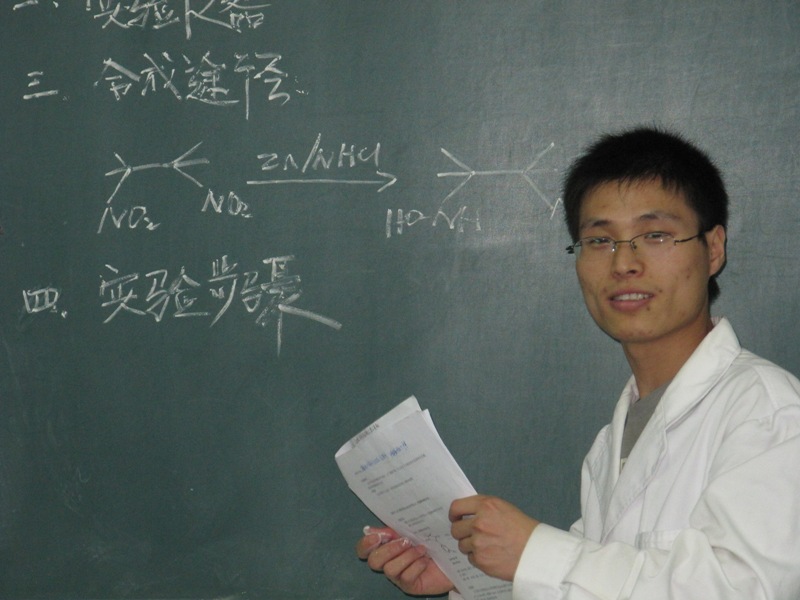 二、实验仪器
三、合成途径:
NO₂ NO₂ Zn/NHCl HO-NH
四、实验步骤